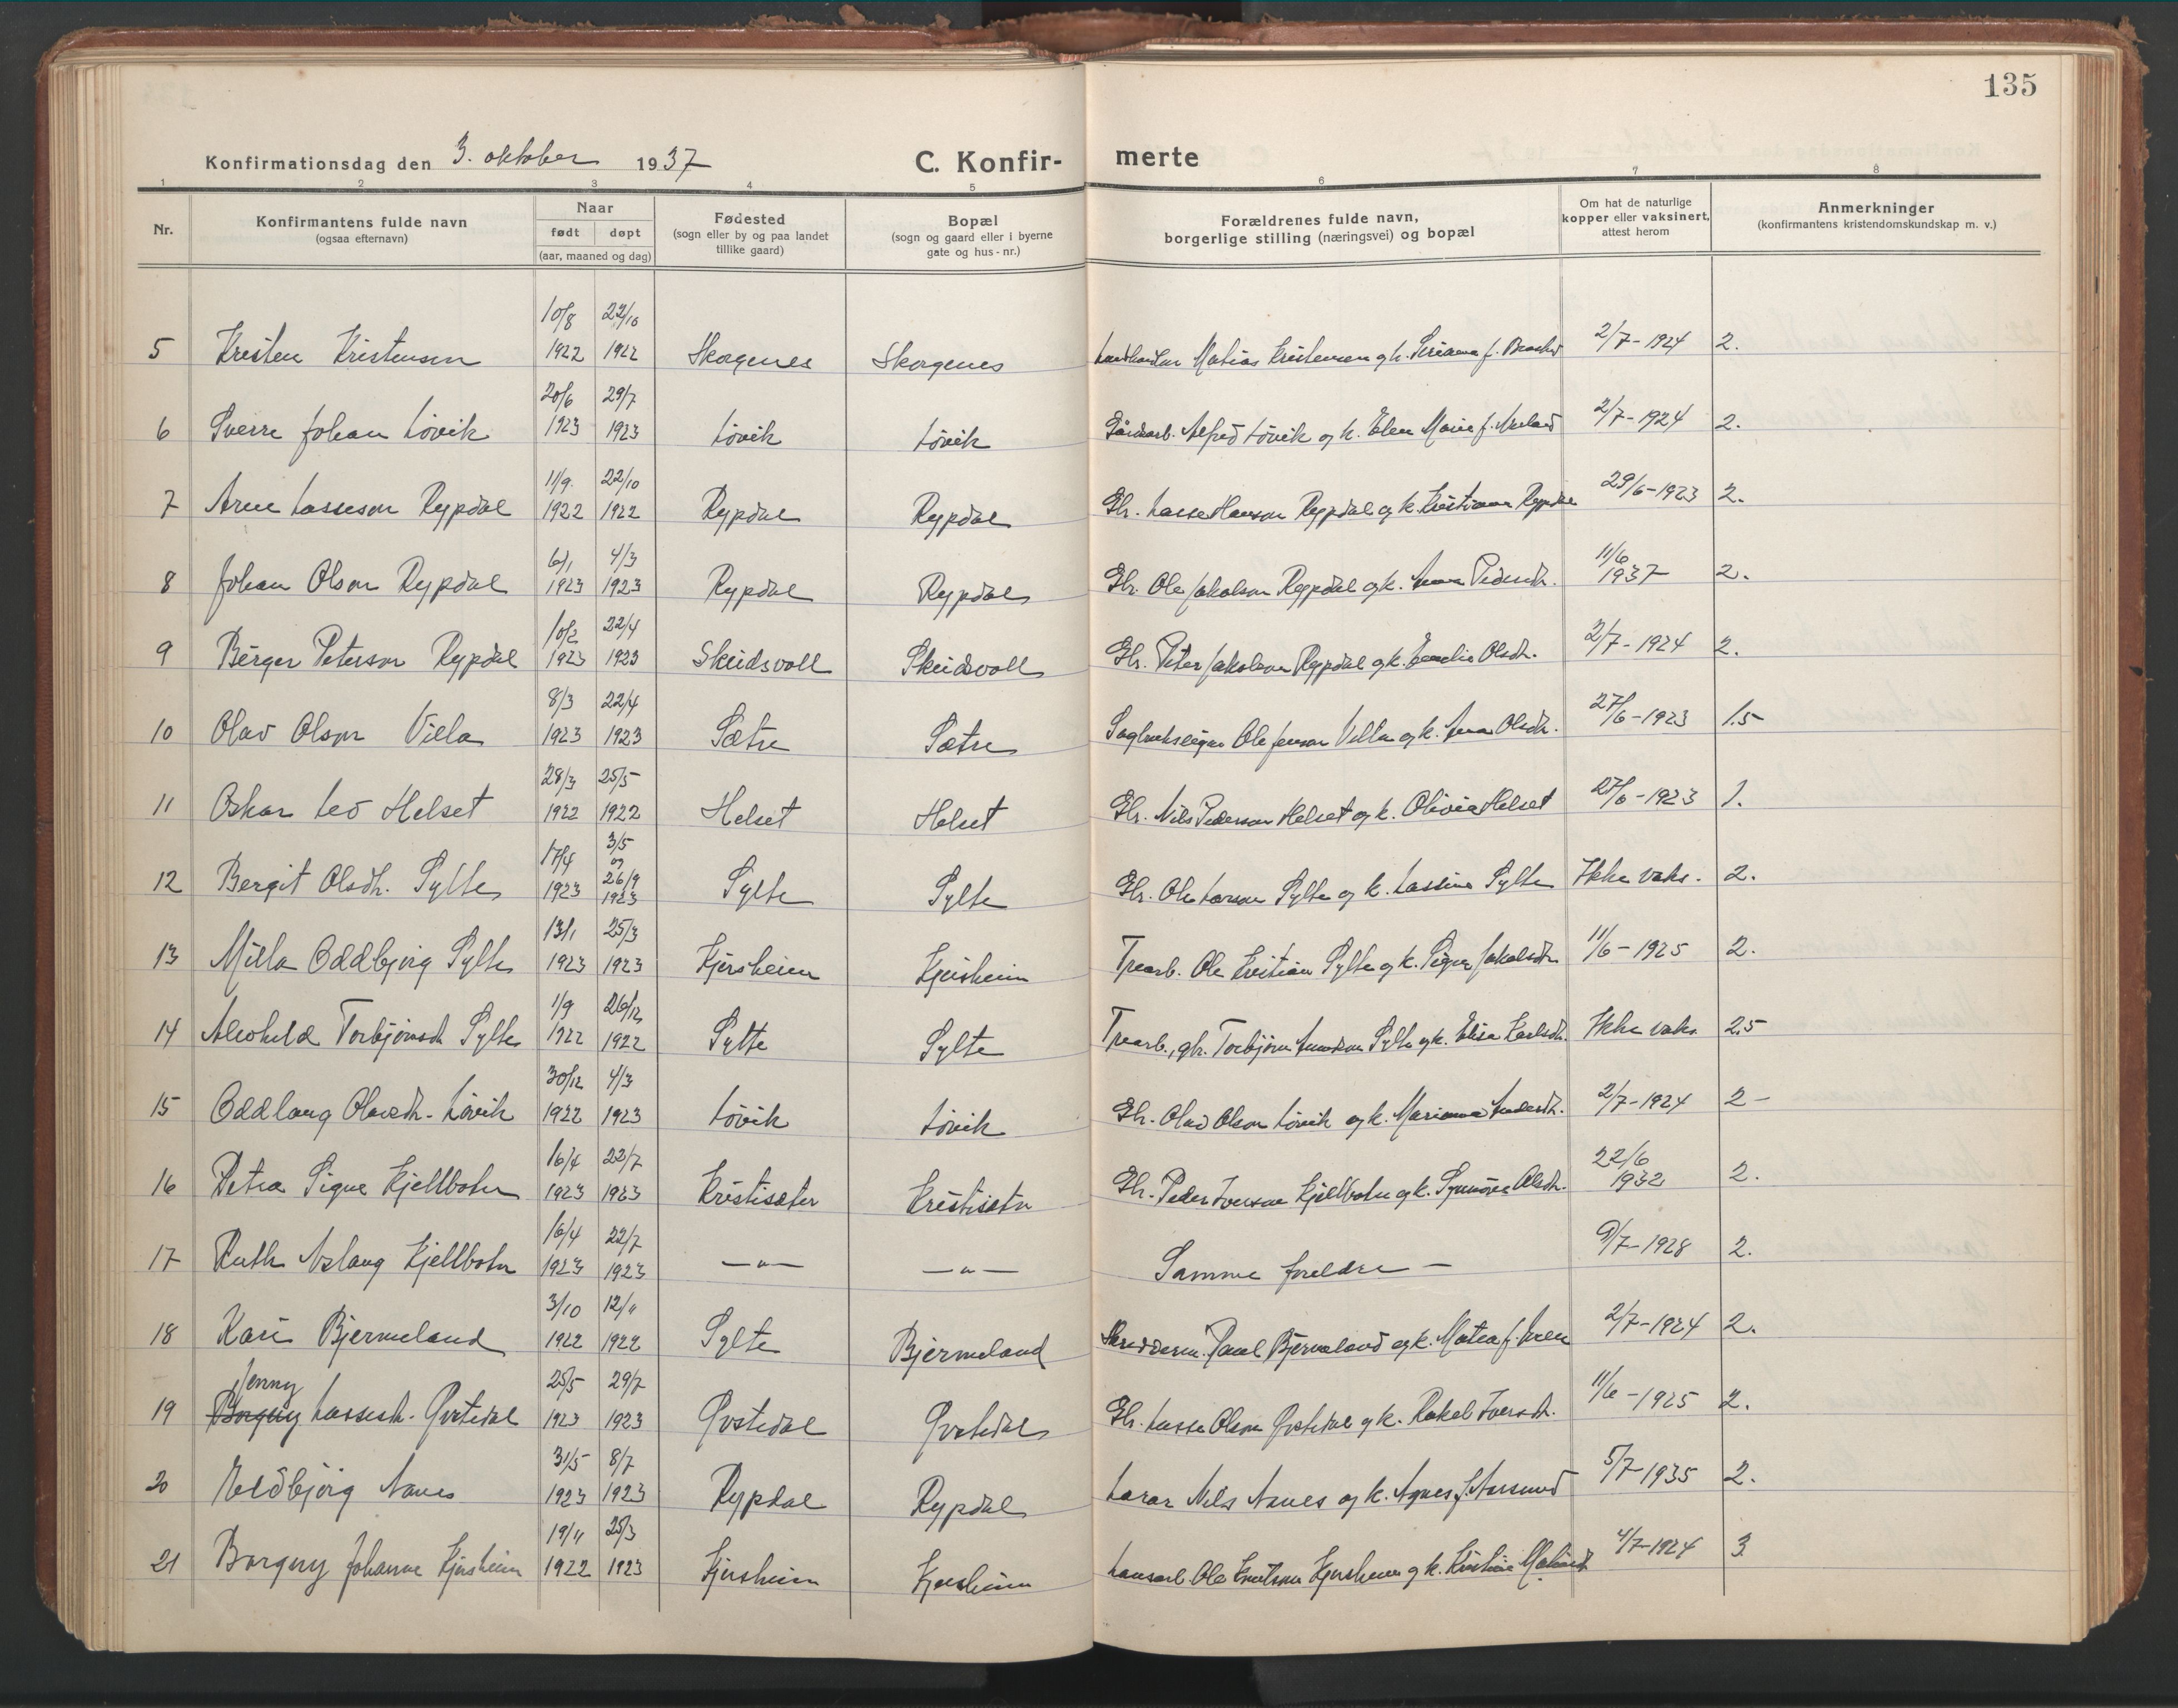 135
Konfirmationsdag den 3. oktober 1937 C. Konfir- merte
1 2 3 4 5 6 7 8
Nr. Konfirmantens fulde navn (ogsaa efternavn) Naar født døpt (aar, maaned og dag) Fødested (sogn eller by og paa landet tillike gaard) Bopæl (sogn og gaard eller i byerne gate og hus-nr.) Forældrenes fulde navn, borgerlige stilling (næringsvei) og bopæl Om hat de naturlige kopper eller vaksinert, attest herom Anmerkninger (konfirmantens kristendomskundskap m. v.)
5 Kresten Kristensen 10/8 1922 22/10 1922 Skorgenes Skorgenes Landhandlar Matias Kristensen og k. f. 2/7-1924 2.
6 Sverre Johan Løvik 20/6 1923 29/7 1923 Løvik Løvik Gardarb. Alfred Løvik og k. Elen Marie f. 2/7-1924 2.
7 Arne Lasseson Rypdal 11/9 1922 22/10 1922 Rypdal Rypdal Gbr. Lasse Hanson Rypdal og k. Kristianna Rypdal 29/6-1923 2.
8 Johan Olson Rypdal 6/1 1923 4/3 1923 Rypdal Rypdal Gbr. Ole Jakobson Rypdal og k. Anna Pedersdt. 11/6 1937 2.
9 Berger Peterson Rypdal 10/2 1923 22/4 1923 Skeidsvoll Skeidsvoll Gbr. Peter Jakobson Rypdal og k. Olsdt. 2/7-1924 2.
10 Olav Olson Villa 8/3 1923 22/4 1923 Sætre Sætre Sagbrukseigar Ole Jenson Villa og k. Anna Olsdt. 27/6-1923 1.5
11 Oskar Leo Helset 28/3 1922 25/5 1922 Helset Helset Gbr. Nils Pederson Helset og k. Olivia Helset 27/6-1923 1.
12 Bergit Olsdt. Sylte 17/4 1923 3/5 og 26/9 1923 Sylte Sylte Gbr. Ole Larson Sylte og k. Lassina Sylte Ikke vaks. 2.
13 Milla Oddbjørg Sylte 13/1 1923 25/3 1923 Kjersheim Kjersheim Trearb. Ole Kristian Sylte og k. Signe Jakobsdt. 11/6-1925 2.
14 Torbjørnsdt Sylte 1/9 1922 26/12 1922 Sylte Sylte Trearb., gbr. Torbjørn Sylte og k. Elise Karlsdt. Ikke vaks. 2.5
15 Oddlaug Olavsdt. Løvik 30/12 1922 4/3 1923 Løvik Løvik Gbr. Olav Olson Løvik og k. Marianna Andersdt. 2/7-1924 2-
16 Petra Signe Kjellbotn 16/4 1923 22/7 1923 Kristisæter Kristisætr Gbr. Peder Iverson Kjellbotn og k. Synnøve Olsdt. 22/6 1932 2.
17 Ruth Aslaug Kjellbotn 16/4 1923 22/7 1923 —"— —"— Samme foreldre — 9/7-1928 2.
18 Kari Bjermeland 3/10 1922 12/11 1922 Sylte Bjermeland Skredderm. Paul Bjermeland og k. Matea f. 2/7-1924 2.
Jenny
19 Borgny Lassesdt. Gvstedal 25/5 1923 29/7 1923 Gvstedal Gvstedal Gbr. Lasse Olson Gvstedal og k. Rakel Iversdt. 11/6-1925 2.
20 Eldbjørg Aanes 31/5 1923 8/7 1923 Rypdal Rypdal Lærar Nils Aanes og k. Agnes f. Aarsund 5/7-1935 2.
21 Borgny Johanne Kjersheim 19/11 1922 25/3 1923 Kjersheim Kjersheim Ole Knutson Kjersheim og k. Kristine 4/7-1924 3